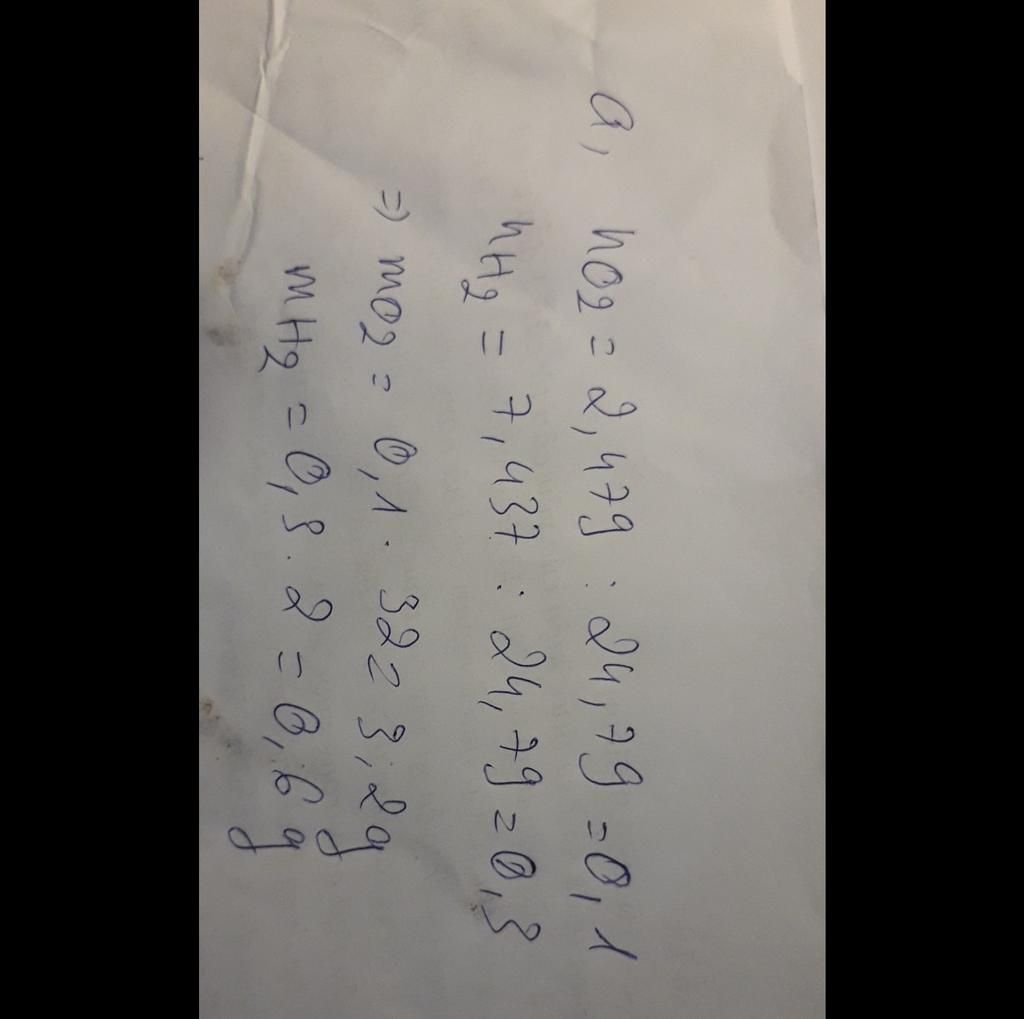 a, nO2 = 2,479 : 24,79 = 0,1
nH2 = 7,437 : 24,79 = 0,3
=> mO2 = 0,1 . 32 = 3,2g
mH2 = 0,3 . 2 = 0,6g